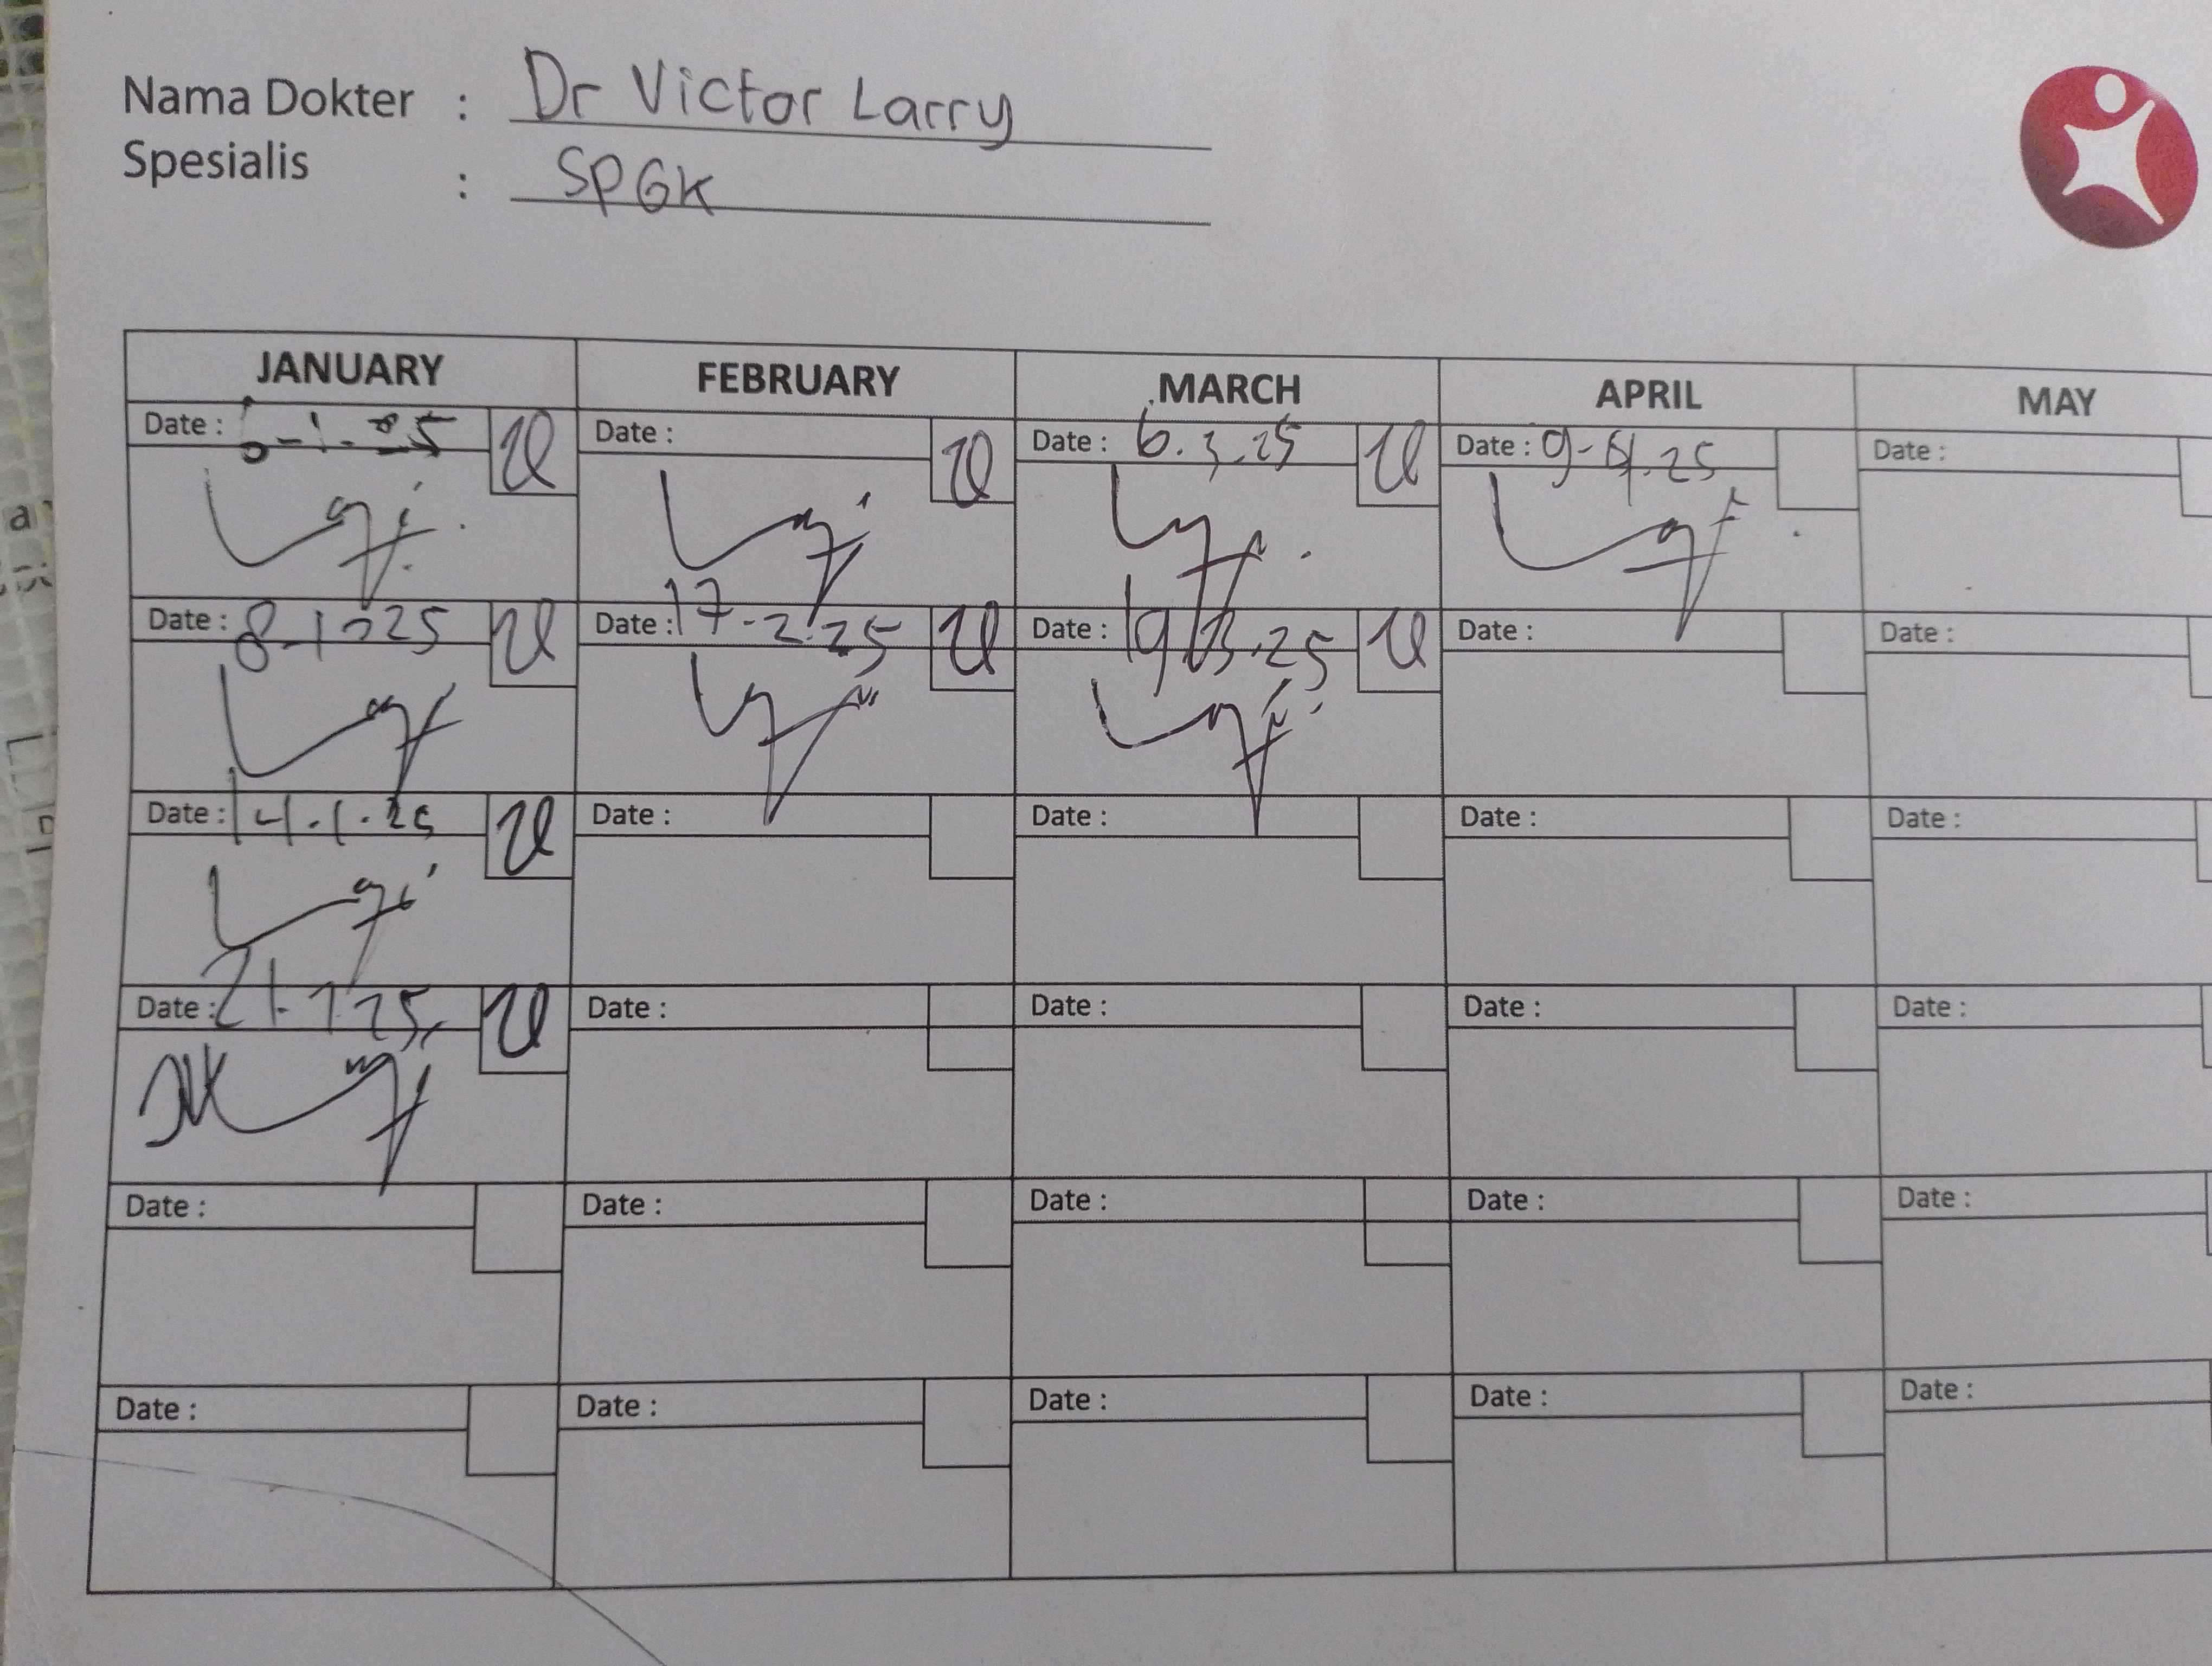 Nama Dokter : Dr Victor Larry
Spesialis : SPGK
JANUARY FEBRUARY MARCH APRIL MAY
Date : 6-1-25 Date : Date : 6.3.25 Date : 9-4.25 Date :
Date : 8-1-25 Date : 17-2-25 Date : 19.3.25 Date : Date :
Date : 14.1.25 Date : Date : Date : Date :
Date : 21.1.25 Date : Date : Date : Date :
Date : Date : Date : Date : Date :
Date : Date : Date : Date : Date :